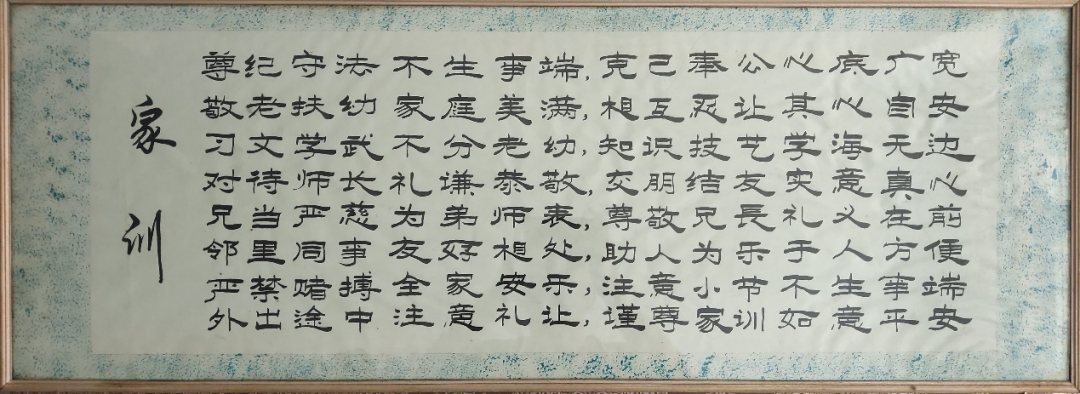 家训
尊纪守法不生事端,克己奉公心底广宽
敬老扶幼家庭美满,相互忍让其心自安
习文学武不分老幼,知识技艺学海无边
对待师长礼谦恭敬,交朋结友实意真心
兄当严慈为弟师表,尊敬兄長礼义在前
邻里同事友好相处,助人为乐于人方便
严禁赌搏全家安乐,注意小节不生事端
外出途中注意礼让,瑾尊家训如意平安